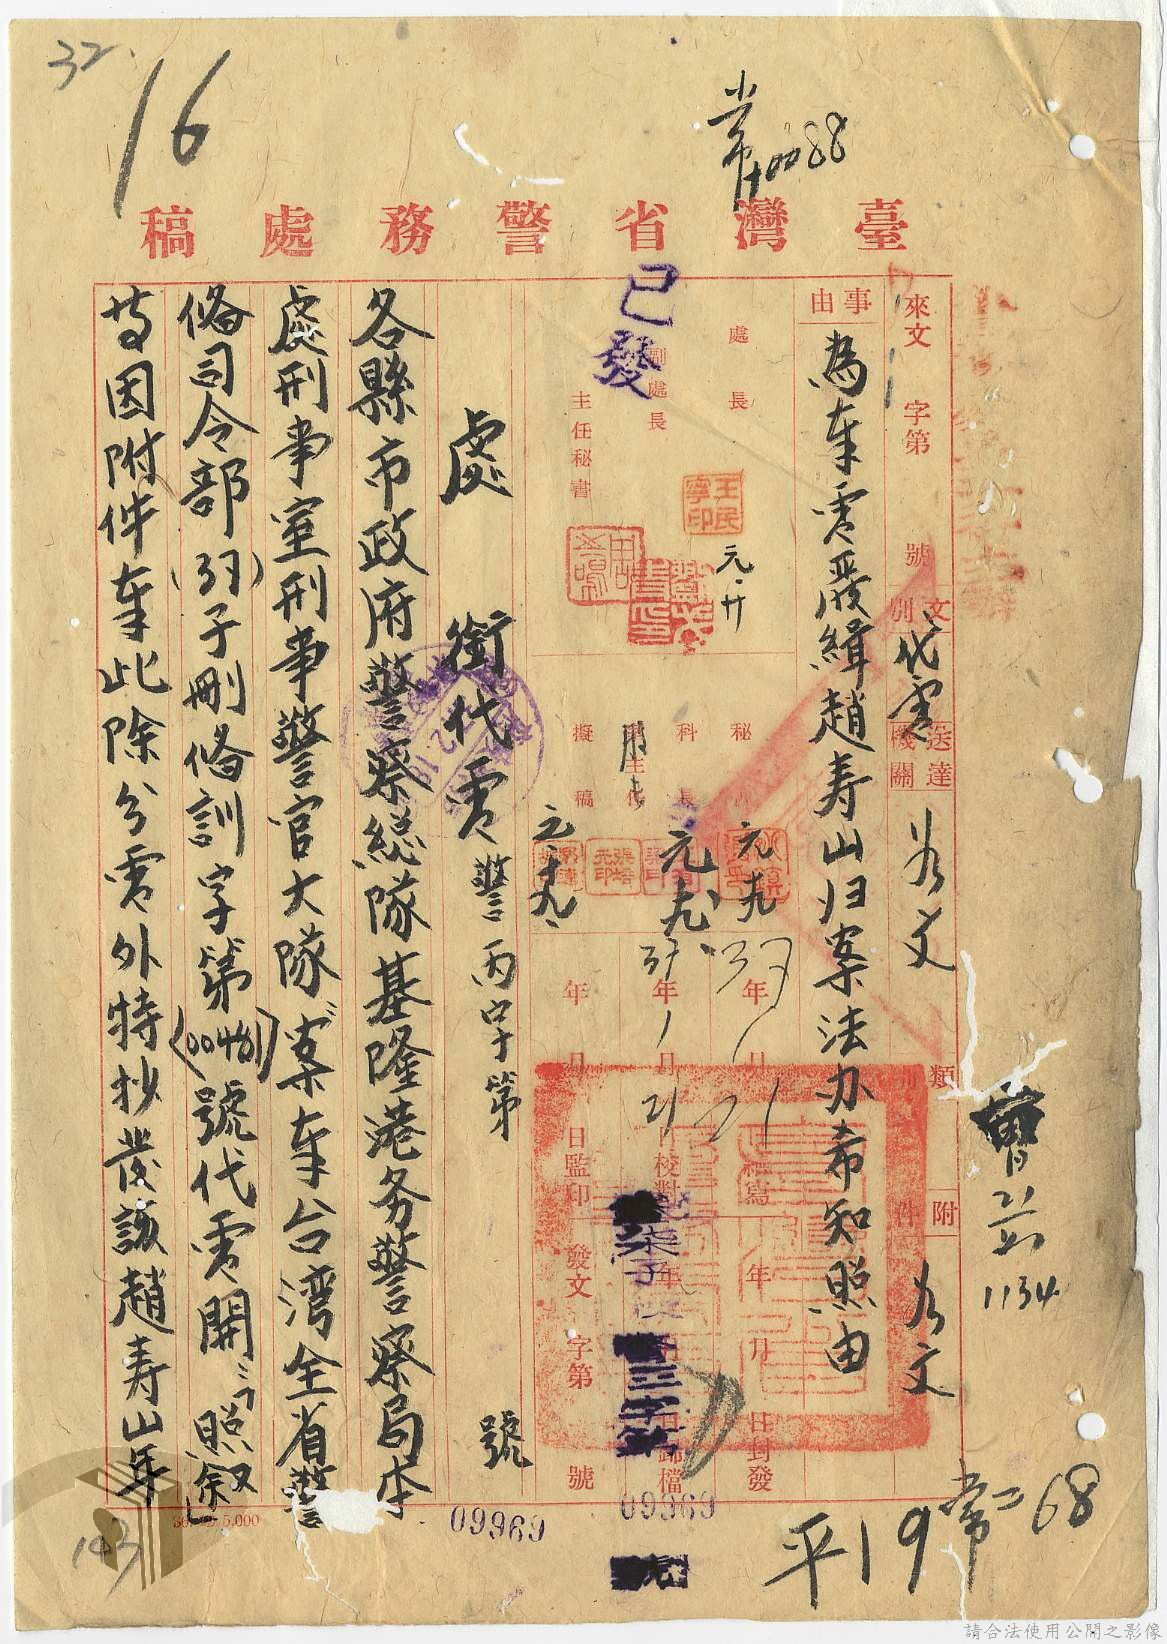 32.
16
常十0088
臺灣省警務處稿
來文 字第 號
文別 代電
送達機關 如文
類別
附件 如文
事由
為奉電嚴緝趙寿山归案法办希知照由
處長
副處長
主任秘書
已發
王民寧印
元.廿
秘
科長
擬稿
元.九
39年1月21
年月日監印
校對
繕寫
年月日封發
年月日歸檔
發文 字第 號
處銜代電 警丙字第 號
各縣市政府警察總隊基隆港务警察局本
處刑事室刑事警官大隊:案奉台湾全省警
俻司令部(39)子刪俻訓字第(00481)號代電開:「照叙」
等因附件奉此除分電外特抄發該趙寿山年
36.12.5.000
143
09969
09969
平19
常二68
1134
請合法使用公開之影像